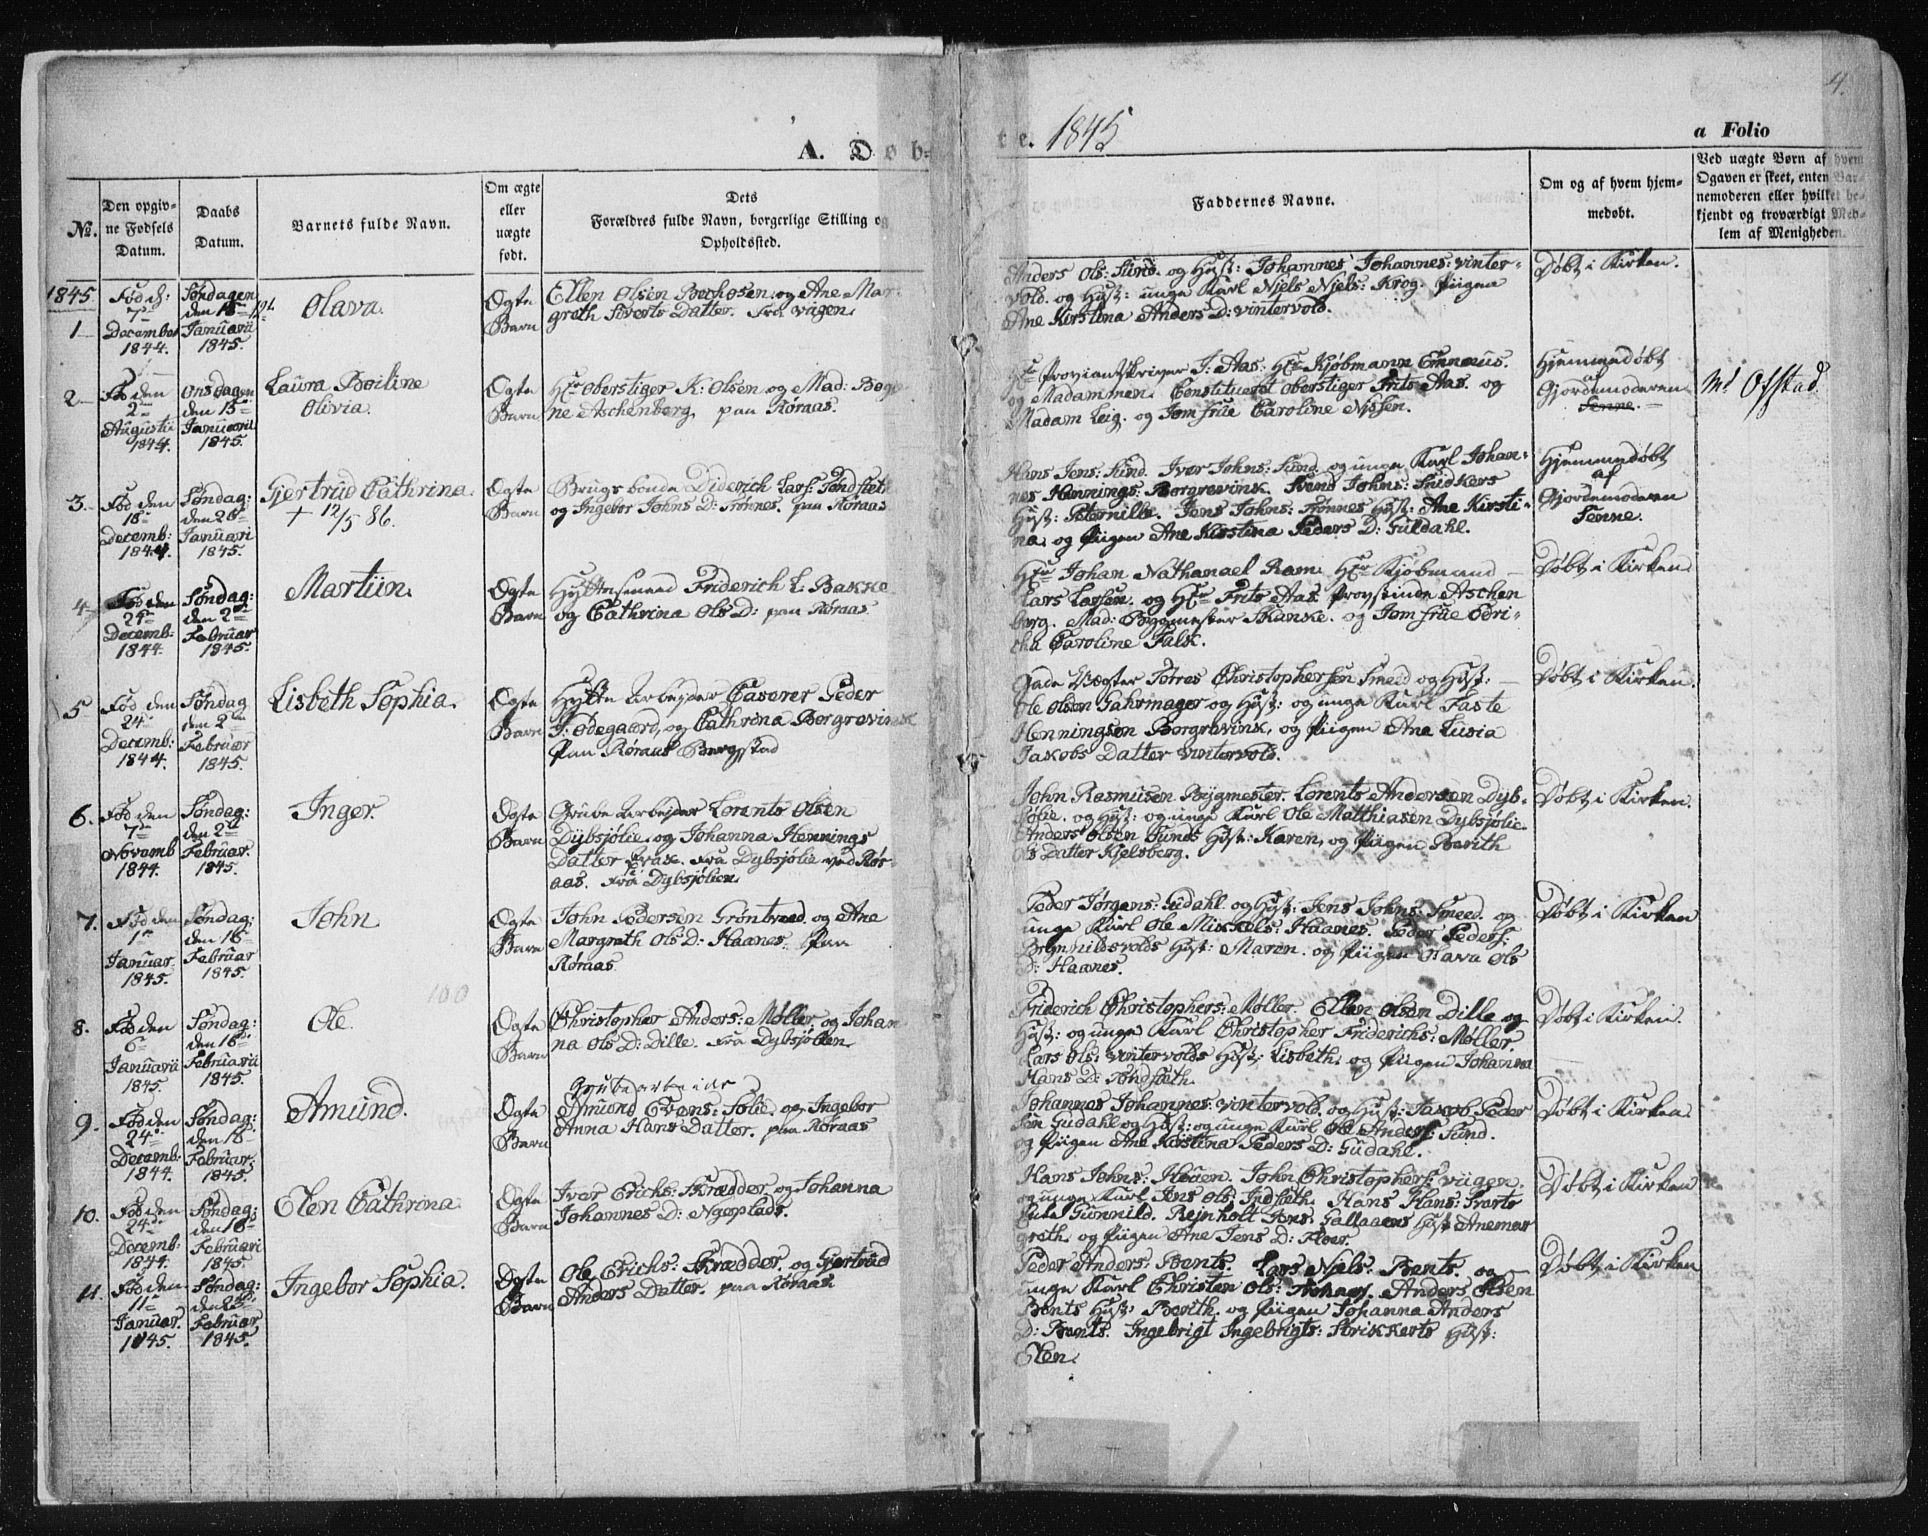 4.
A. Døb-
te. 1845
a Folio
No.
Den opgiv-
ne Fødsels
Datum.
Daabs
Datum.
Barnets fulde Navn.
Om ægte
eller
uægte
født.
Dets
Forældres fulde Navn, borgerlige Stilling og
Opholdssted.
Faddernes Navne.
Om og af hvem hjem-
medøbt.
Ved uægte Børn af hvem
Opgaven er skeet, enten Bar-
nemoderen eller hvilket be-
kjendt og troværdigt Med-
lem af Menigheden.
1845
1
Fød d:
7de
December
1844.
Søndagen
den
Januarii
1845.
Olava.
Ægte
Barn
Ellen Olsen og Ane Mar-
greth Siverts Datter. Fra Vigen.
Anders Ols: Sund. og Hust: Johannes Johannes: Vinter-
vold. og Hust: unge Karl Njels Njels: Krog. Piigen
Ane Kirstina Anders D: Vintervold.
Døbt i Kirken.
2.
Fød den
2den
Augustii
1844.
Onsdagen
den 15de
Januarii
1845.
Laura Boiline
Olivia.
Ægte
Barn
Hr Oberstiger K: Olsen og Mad: Boge
ne Aschenberg, paa Røraas.
Hr Proviantskriver J: Aas: Hr Kjøbmann Emmaus.
og Madammen. Constitueret Oberstiger Frits Aas. og
Madam Leig. og Jomfrue Caroline Nissen.
Hjemmedøbt
af
Gjordemoderen
Senne.
Md Ofstad.
3.
Fød den
18de
Decemb:
1844.
Søndag:
den 26de
Januari
1845.
Gjertrud Cathrina.
+ 12/5 86.
Ægte
Barn
Brugs bonde Diderich Lars: Tondseth
og Ingebor Johns D: Tønnes. paa Røraas
Hans Jens: Sund. Iver Johns: Sund. og unge Karl Johan-
nes Hennings: Borgrevink. Bend Johns: Snidkers
Hust: Peternille. Jens Johns: Tønnes Hust: Ane Kirsti-
na. og Piigen Ane Kirstina Peders D: Guldahl.
Hjemmedøbt
af
Gjordemoderen
Senne.
4
Fød den
24de
Decemb:
1844.
Søndag:
den 2den
Februar
1845.
Martiin.
Ægte
Barn
Hyttesmeed Friderich L: Bakke
og Cathrina Ols D: paa Røraas
Hr Johan Nathanael Ram. Hr Kjøbmand
Lars Larsen. og Hr Frits Aas. Aschen
berg. Mad: Bygmester Skanke. og Jomfrue Edri-
cka Caroline Falk.
Døbt i Kirken
5
Fød den
24de
Decemb:
1844.
Søndag
den 2den
Februar
1845.
Lisbeth Sophia.
Ægte
Barn
Hytte Arbejder Casorer Peder
J: Ødegaard, og Cathrina Borgrevinck
Paa Røraas Bergstad
Gade Vægter Torres Christophersen Smeed og Hust:
Ole Olsen Gahrmager og Hust: og unge Karl Faste
Henningsen Borgrevink, og Piigen Ane Lusia
Jakobs Datter Vintervold.
Døbt i Kirken.
6.
Fød den
7de
Novemb
1844.
Søndag:
den 2de
Februar.
1845.
Inger.
Ægte
Barn
Grube Arbejder Lorents Olsen
Dybsjølie, og Johanna Hennings
Datter Fra Dybsjølie ved Rør-
aas. Fra Dybsjølien.
John Rasmusen Bygmester. Lorents Andersen Dyb-
sjølie. og Hust: og unge Karl Ole Matthiasen Dybsjølie.
Anders Olsen Sunds Hust: Karen, og Piigen Berith
Ols Datter Kjelsberg.
Døbt i Kirken.
7.
Fød den
1te
Januar.
1845.
Søndag:
den 16de
Februar
1845.
John
Ægte
Barn
John Pedersen Grøntvred. og Ane
Margreth Ols D: Haanes. Paa
Røraas.
Peder Jørgens: Gudahl og Hust: Jens Johns: Smeed. og
unge Karl Ole Mikkels: Haanes. Peder Peders:
Brynhildsvolds Hust: Maren. og Piigen Olava Ols
D: Haanes.
Døbt i Kirken
100
8.
Fød den
6te
Januarii
1845.
Søndag:
den 16de
Februarii
1845.
Ole.
Ægte
Barn
Christopher Anders: Møller. og Johan
na Ols D: Dille. Fra Dybsjølien.
Friderich Christophers: Møller. Ellen Olsen Dille og
Hust: og unge Karl Christopher Friderichs: Møller.
Lars Ols: Vintervolds Hust: Lisbeth. og Piigen Johanna
Hans D: Tondseth.
Døbt i Kirken.
9.
Fød den
24de
Decemb:
1844.
Søndag:
den 16de
Februar:
1845.
Amund.
Ægte
Barn
Grubearbeider
Amund Evens: Solie. og Ingebor
Anna Hans Datter. paa Røraas
Johannes Johannes: Vintervold. og Hust: Jakob Peder
sen Gudahl og Hust: og unge Karl Ole Anders: Sund.
og Piigen Ane Kirstina Peders D: Gudahl.
Døbt i Kirken.
10.
Fød den
24de
Decemb:
1844.
Søndag:
den 16de
Februari
1845.
Elen Cathrina.
Ægte
Barn
Iver Erichs: Skrædder og Johanna
Johannes D: Nyeplads.
Hans Johns: John Christophers: Viigen.
og unge Karl Jens Ols: Hans Hans:
Gunnild. Rejnholt Jens: Gallaaens Hust Anemar
greth. og Piigen Ane Jens D: Floer.
Døbt i Kirken
11.
Fød den
11te
Januar.
1845.
Søndag:
den 23de
Februar,
1845.
Ingebor Sophia.
Ægte
Barn
Ole Erichs: Skrædder. og Gjertrud
Anders Datter. paa Røraas.
Peder Anders: Bents. Lars Njels: Bents. og
unge Karl Christen Ols: Anders Olsen
Bents Hust: Berith. og Piigen Johanna Anders
D: Bents. Ingebrigt Ingebrigts: Strikkerts Hust:
Elen.
Døbt i Kirken